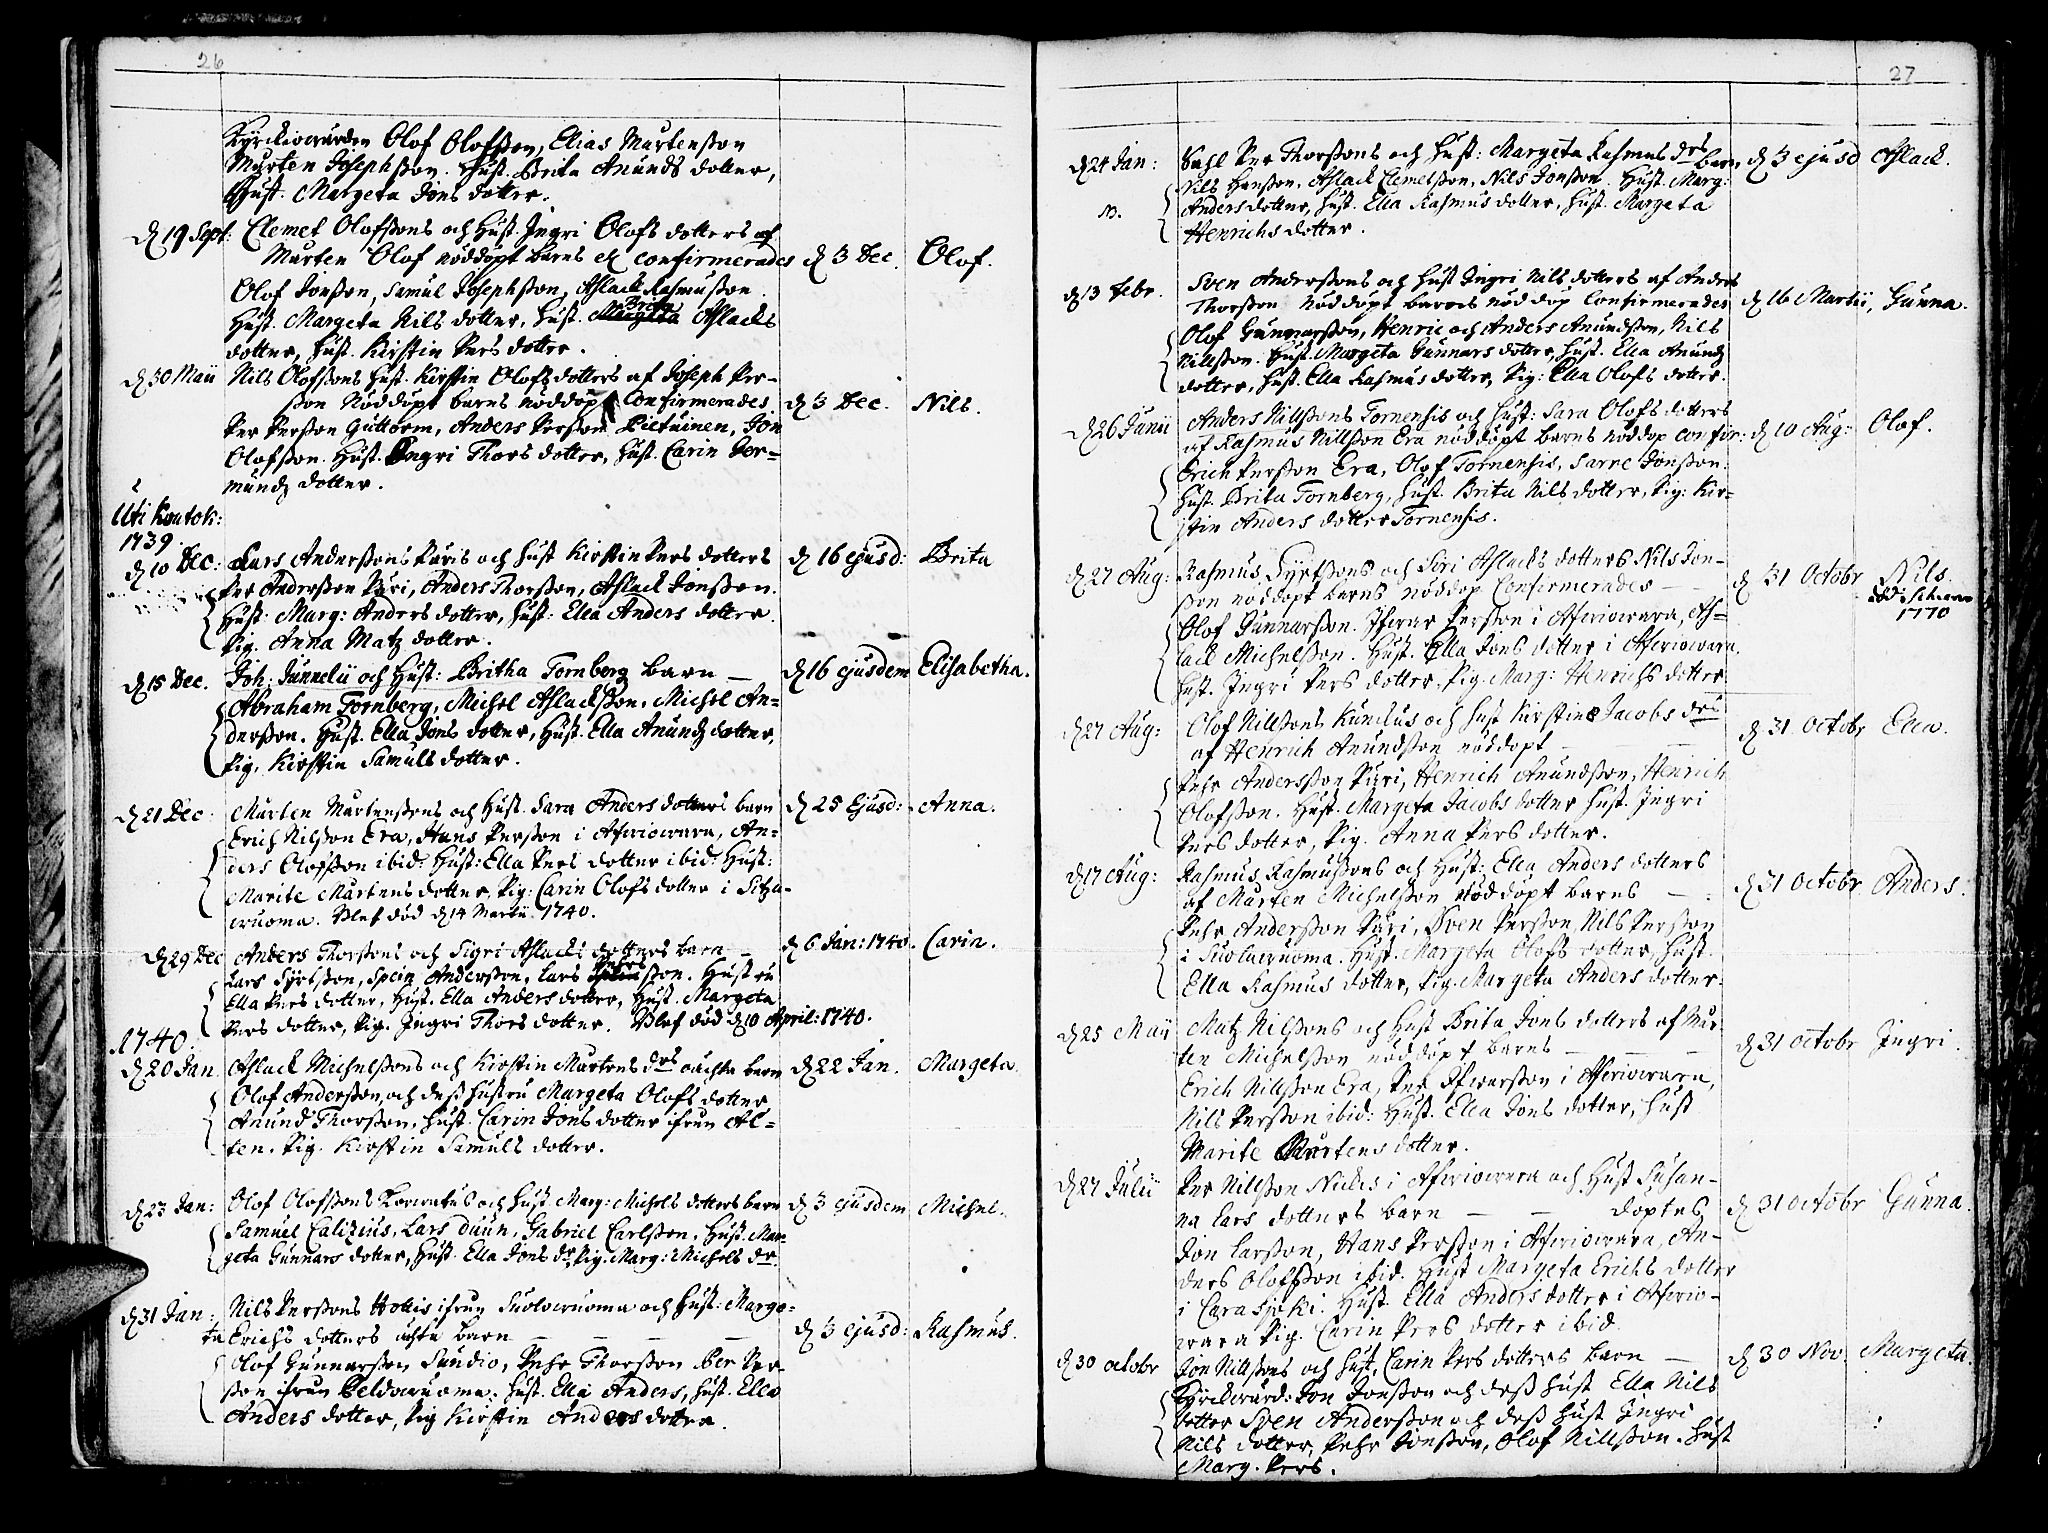 26
Kyrckiowärden Olof Olofsson, Elias Mårtensson
Mårten Josephsson. Hust. Brita Anunds dotter,
Hust. Margeta Jons dotter.
d 19 Sept: Clemet Olofssons och Hust. Ingri Olofs dotters af
Mårten Olof nöddöpt barns confirmerades d 3 Dec. Olof.
Olof Jonsson, Samul Josephsson, Aslack Rasmusson
Hust. Margeta Nils dotter, Hust. Brita Aslacks
dotter, Hust. Kirstin Pers dotter.
d 30 Maii Nils Olofssons Hust. Kirstin Olofs dotters af Joseph Per-
sson Nöddöpt barns nöddop Confirmerades d 3 Dec. Nils.
Per Persson Guttorm, Anders Persson Pietuinen, Jon
Olofsson. Hust. Ingri Thors dotter, Hust. Carin Jer-
munds dotter.
Uti Koutok:
1739.
d 10 Dec: Lars Anderssons Päris och Hust Kirstin Pers dotters d 16 ejusd: Brita
Per Andersson Päri, Anders Thorsson, Aslack Jonsson.
Hust: Marg: Anders dotter, Hust: Ella Anders dotter.
Pig. Anna Matz dotter.
d 15 Dec. Joh: Junnelii och Hust: Britha Tornberg barn — d 16 ejusdem Elisabetha.
Abraham Tornberg, Michel Aslacksson, Michel An-
dersson. Hust. Ella Jons dotter, Hust. Ella Anunds dotter,
Pig. Kirstin Samuls dotter.
d 21 Dec: Mårten Mårtenssons och Hust. Sara Anders dotters barn d 25 Ejusd: Anna.
Erich Nilsson Era, Hans Persson i Afwiowara, An-
ders Olofsson ibid: Hust: Ella Pers dotter ibid: Hust:
Marite Mårtens dotter, Pig: Carin Olofs dotter i Sitza-
wuoma. Blef död d 14 Martii 1740.
d 29 Dec Anders Thorssons och Sigri Aslacks dotters barn — d 6 Jan: 1740. Carin.
Lars Syrtsson, Spein Andersson, Lars Pehrsson. Hustru
Ella Pers dotter, Hust. Ella Anders dotter, Hust. Margeta
Pers dotter, Pig. Ingri Thors dotter. Blef död d 10 April: 1740.
1740.
d 20 Jan. Aslack Michelssons och Kirstin Mårtens drs oächta barn d 22 Jan. Margeta.
Olof Andersson, och dess hustru Margeta Olofs dotter
Anund Thorsson, Hust. Carin Jons dotter ifrån Al-
ten. Pig. Kirstin Samuls dotter.
d 23 Jan: Olof Olofssons och Hust. Marg: Michels dotters barn d 3 ejusdem Michel.
Samuel Calizius, Lars Duun, Gabriel Carlsson, Hust. Mar-
geta Gunnars dotter, Hust. Ella Jons dr, Pig. Marg: Michels dr.
d 31 Jan: Nils Perssons Hottis ifrån Suolowuoma och Hust: Marge-
ta Erichs dotters ächta barn — d 3 ejusd: Rasmus.
Olof Gunnarsson Sundio, Pehr Thorsson Per Per-
sson ifrån Peldowuoma. Hust. Ella Anders, Hust. Ella
Anders dotter, Pig Kirstin Anders dotter.
27
d 24 Jan: Sahl Per Thorssons och Hust: Margeta Rasmus drs barn, d 3 ejusd Aslack.
Nils Hansson, Aslack Clemetsson, Nils Jonsson. Hust. Marg:
Anders dotter, Hust. Ella Rasmus dotter, Hust. Margeta
Henrichs dotter.
d 13 Febr. Sven Anderssons och Hust Ingri Nils dotters af Anders
Thorsson Nöddöpt barns nöddop Confirmerades d 16 Martii, Gunna.
Olof Gunnarsson, Henric och Anders Anundsson, Nils
Nillsson. Hust. Margeta Gunnars dotter, Hust. Ella Anunds
dotter, Hust. Ella Rasmus dotter, Pig: Ella Olofs dotter.
d 26 Junii Anders Nillssons Tornensis och Hust: Sara Olofs dotters
af Rasmus Nillsson Era nöddöpt barns nöddop confir: d 10 Aug: Olof.
Erich Persson Era, Olof Tornensis, Sarre Jonsson.
Hust. Brita Tornberg, Hust. Brita Nils dotter, Pig: Kir-
stin Anders dotter Tornensis.
d 27 Aug: Rasmus Syrtssons och Siri Aslacks dotters Nils Jon-
sson nöddöpt barns nöddop Confirmerades — d 31 Octobr Nils.
1770
Olof Gunnarsson. Ifwar Persson i Afwiowara, As-
lack Michelsson. Hust. Ella Jons dotter i Afwiowara.
Hust. Ingri Pers dotter, Pig. Marg: Henrichs dotter.
d 27 Aug: Olof Nillssons Kunelus och Hust Kirstin Jacobs drs
af Henrich Anundsson nöddöpt — d 31 Octobr Ella.
Pehr Andersson Päri, Henrich Anundsson, Henrich
Olofsson. Hust. Margeta Jacobs dotter Hust. Ingri
Pers dotter, Pig. Anna Pers dotter.
d 17 Aug: Rasmus Rasmussons och Hust: Ella Anders dotters
af Mårten Michelsson nöddöpt barns — d 31 Octobr Anders.
Pehr Andersson Päri, Sven Persson, Nils Persson
i Suolawuoma. Hust. Margeta Olofs dotter, Hust.
Ella Rasmus dotter, Pig. Margeta Anders dotter.
d 25 Maij Matz Nilssons och Hust Brita Jons dotters af Mår-
ten Michelsson nöddöpt barns — d 31 Octobr Ingri.
Erich Nillsson Era, Per Ifwarsson i Afwiowara,
Nils Persson ibid: Hust. Ella Jons dotter, Hust
Marite Mårtens dotter.
d 27 Julii Per Nillsson Nickis i Afwiowara och Hust Susan-
na Lars dotters barn — döptes d 31 Octobr Gunna.
Jon Larsson, Hans Persson i Afwiowara, An-
ders Olofsson ibid. Hust Margeta Erichs dotter
i Carasjoki. Hust. Ella Anders dotter i Afwio-
wara Pig. Carin Pers dotter ibid.
d 30 Octobr Jon Nillssons och Hust, Carin Pers dotters barn — d 30 Nov. Margeta.
Kyrckwärd: Jon Jonsson och dess Hust Ella Nils
dotter Sven Andersson och dess Hust Ingri
Nils dotter, Pehr Jonsson, Olof Nillsson. Hust
Marg. Pers.